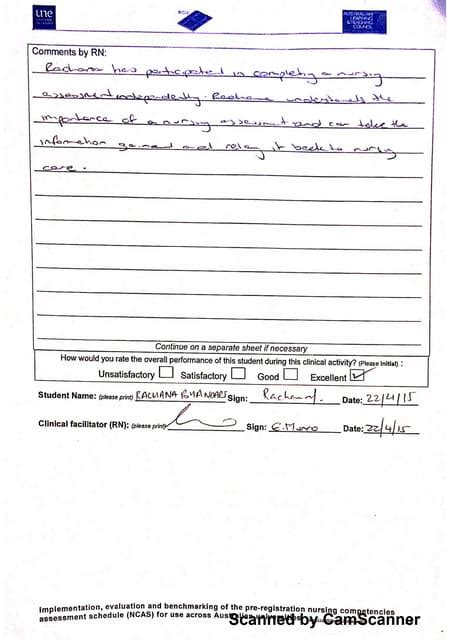 une
AUSTRALIAN
LEARNING
& TEACHING
COUNCIL
Comments by RN:
Rachana has participated in completing a nursing
assessment independently. Rachana understands the
importance of a nursing assessment and can take the
information gained and relay it back to nursing
care.
Continue on a separate sheet if necessary
How would you rate the overall performance of this student during this clinical activity? (Please Initial) :
Unsatisfactory Satisfactory Good Excellent ✓
Student Name: (please print) RACHANA Sign: Date: 22/4/15
Clinical facilitator (RN): (please print) Sign: E.Munro Date: 22/4/15
Implementation, evaluation and benchmarking of the pre-registration nursing competencies
assessment schedule (NCAS) for use across Australian universities
Scanned by CamScanner